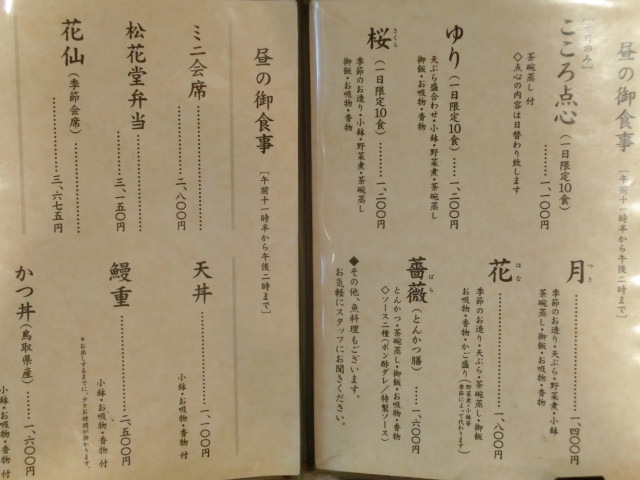 昼の御食事 [午前十一時半から午後二時まで]
こころ点心 (一日限定10食) ……… 一、一〇〇円
茶碗蒸し付
◇点心の内容は日替わり致します
ゆり (一日限定10食) …… 一、二〇〇円
天ぷら盛合わせ・小鉢・野菜煮・茶碗蒸し
御飯・お吸物・香物
桜 さくら (一日限定10食) …… 一、二〇〇円
季節のお造り・小鉢・野菜煮・茶碗蒸し
御飯・お吸物・香物
月 つき ……… 一、四〇〇円
季節のお造り・天ぷら・野菜煮・小鉢
茶碗蒸し・御飯・お吸物・香物
花 はな ……… 一、八〇〇円
季節のお造り・天ぷら・茶碗蒸し・御飯
お吸物・香物・かご盛り(季節によって代わります)
薔薇 ばら (とんかつ膳) …… 一、六〇〇円
とんかつ・茶碗蒸し・御飯・お吸物・香物
◇ソース二種(ポン酢ダレ/特製ソース)
◆その他、魚料理もございます。
お気軽にスタッフにお聞きください。
昼の御食事 [午前十一時半から午後二時まで]
ミニ会席 ……… 二、八〇〇円
松花堂弁当 ……… 三、一五〇円
花仙 (季節会席) ……… 三、六七五円
天丼 ……… 一、一〇〇円
小鉢・お吸物・香物 付
鰻重 ……… 二、五〇〇円
小鉢・お吸物・香物 付
*お出しするまでに、少々お時間が掛かります。
かつ丼 (鳥取県産) …… 一、六〇〇円
小鉢・お吸物・香物 付